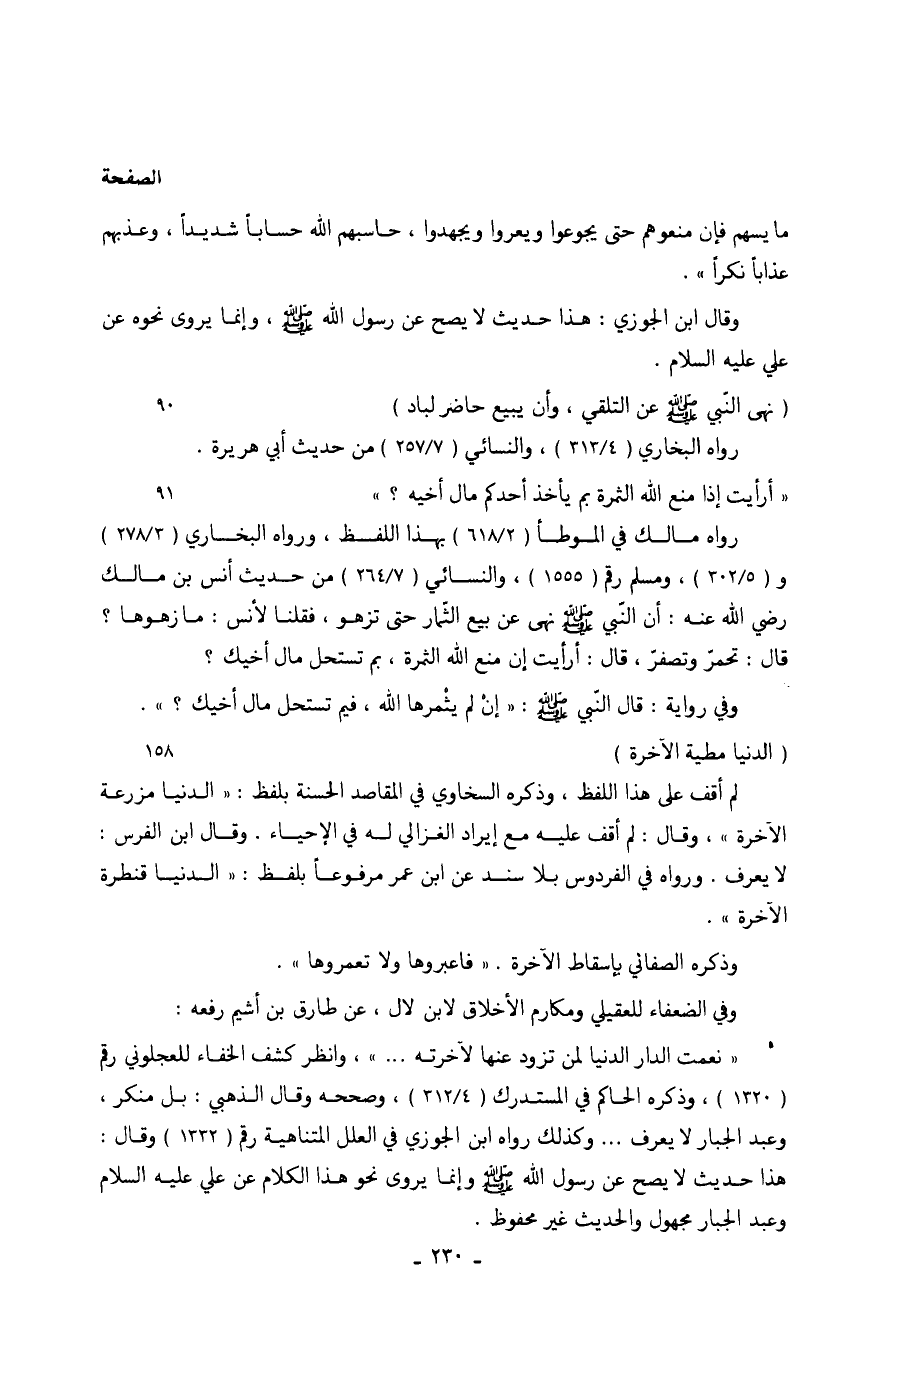 الصفحة
ما يسهم فإن منعوهم حتى يجوعوا ويعروا ويجهدوا ، حاسبهم الله حساباً شديداً ، وعذبهم
عذاباً نكراً » .
وقال ابن الجوزي : هذا حديث لا يصح عن رسول الله ﷺ ، وإنما يروى نحوه عن
علي عليه السلام .
( نهى النّبي ﷺ عن التلقي ، وأن يبيع حاضر لباد ) ٩٠
رواه البخاري ( ٣١٣/٤ ) ، والنسائي ( ٢٥٧/٧ ) من حديث أبي هريرة .
« أرأيت إذا منع الله الثمرة بم يأخذ أحدكم مال أخيه ؟ » ٩١
رواه مالك في الموطأ ( ٦١٨/٢ ) بهذا اللفظ ، ورواه البخاري ( ٢٧٨/٣ )
و ( ٣٠٢/٥ ) ، ومسلم رقم ( ١٥٥٥ ) ، والنسائي ( ٢٦٤/٧ ) من حديث أنس بن مالك
رضي الله عنه : أن النّبي ﷺ نهى عن بيع الثّمار حتى تزهو ، فقلنا لأنس : ما زهوها ؟
قال : تحمرّ وتصفرّ ، قال : أرأيت إن منع الله الثمرة ، بم تستحل مال أخيك ؟
وفي رواية : قال النّبي ﷺ : « إنْ لم يثْمرها الله ، فبم تستحل مال أخيك ؟ » .
( الدنيا مطية الآخرة ) ١٥٨
لم أقف على هذا اللفظ ، وذكره السخاوي في المقاصد الحسنة بلفظ : « الدنيا مزرعة
الآخرة » ، وقال : لم أقف عليه مع إيراد الغزالي له في الإحياء . وقال ابن الفرس :
لا يعرف . ورواه في الفردوس بلا سند عن ابن عمر مرفوعاً بلفظ : « الدنيا قنطرة
الآخرة » .
وذكره الصغاني بإسقاط الآخرة . « فاعبروها ولا تعمروها » .
وفي الضعفاء للعقيلي ومكارم الأخلاق لابن لال ، عن طارق بن أشيم رفعه :
« نعمت الدار الدنيا لمن تزود عنها لآخرته ... » ، وانظر كشف الخفاء للعجلوني رقم
( ١٣٢٠ ) ، وذكره الحاكم في المستدرك ( ٣١٢/٤ ) ، وصححه وقال الذهبي : بل منكر ،
وعبد الجبار لا يعرف ... وكذلك رواه ابن الجوزي في العلل المتناهية رقم ( ١٣٣٢ ) وقال :
هذا حديث لا يصح عن رسول الله ﷺ وإنما يروى نحو هذا الكلام عن علي عليه السلام
وعبد الجبار مجهول والحديث غير محفوظ .
- ٢٣٠ -